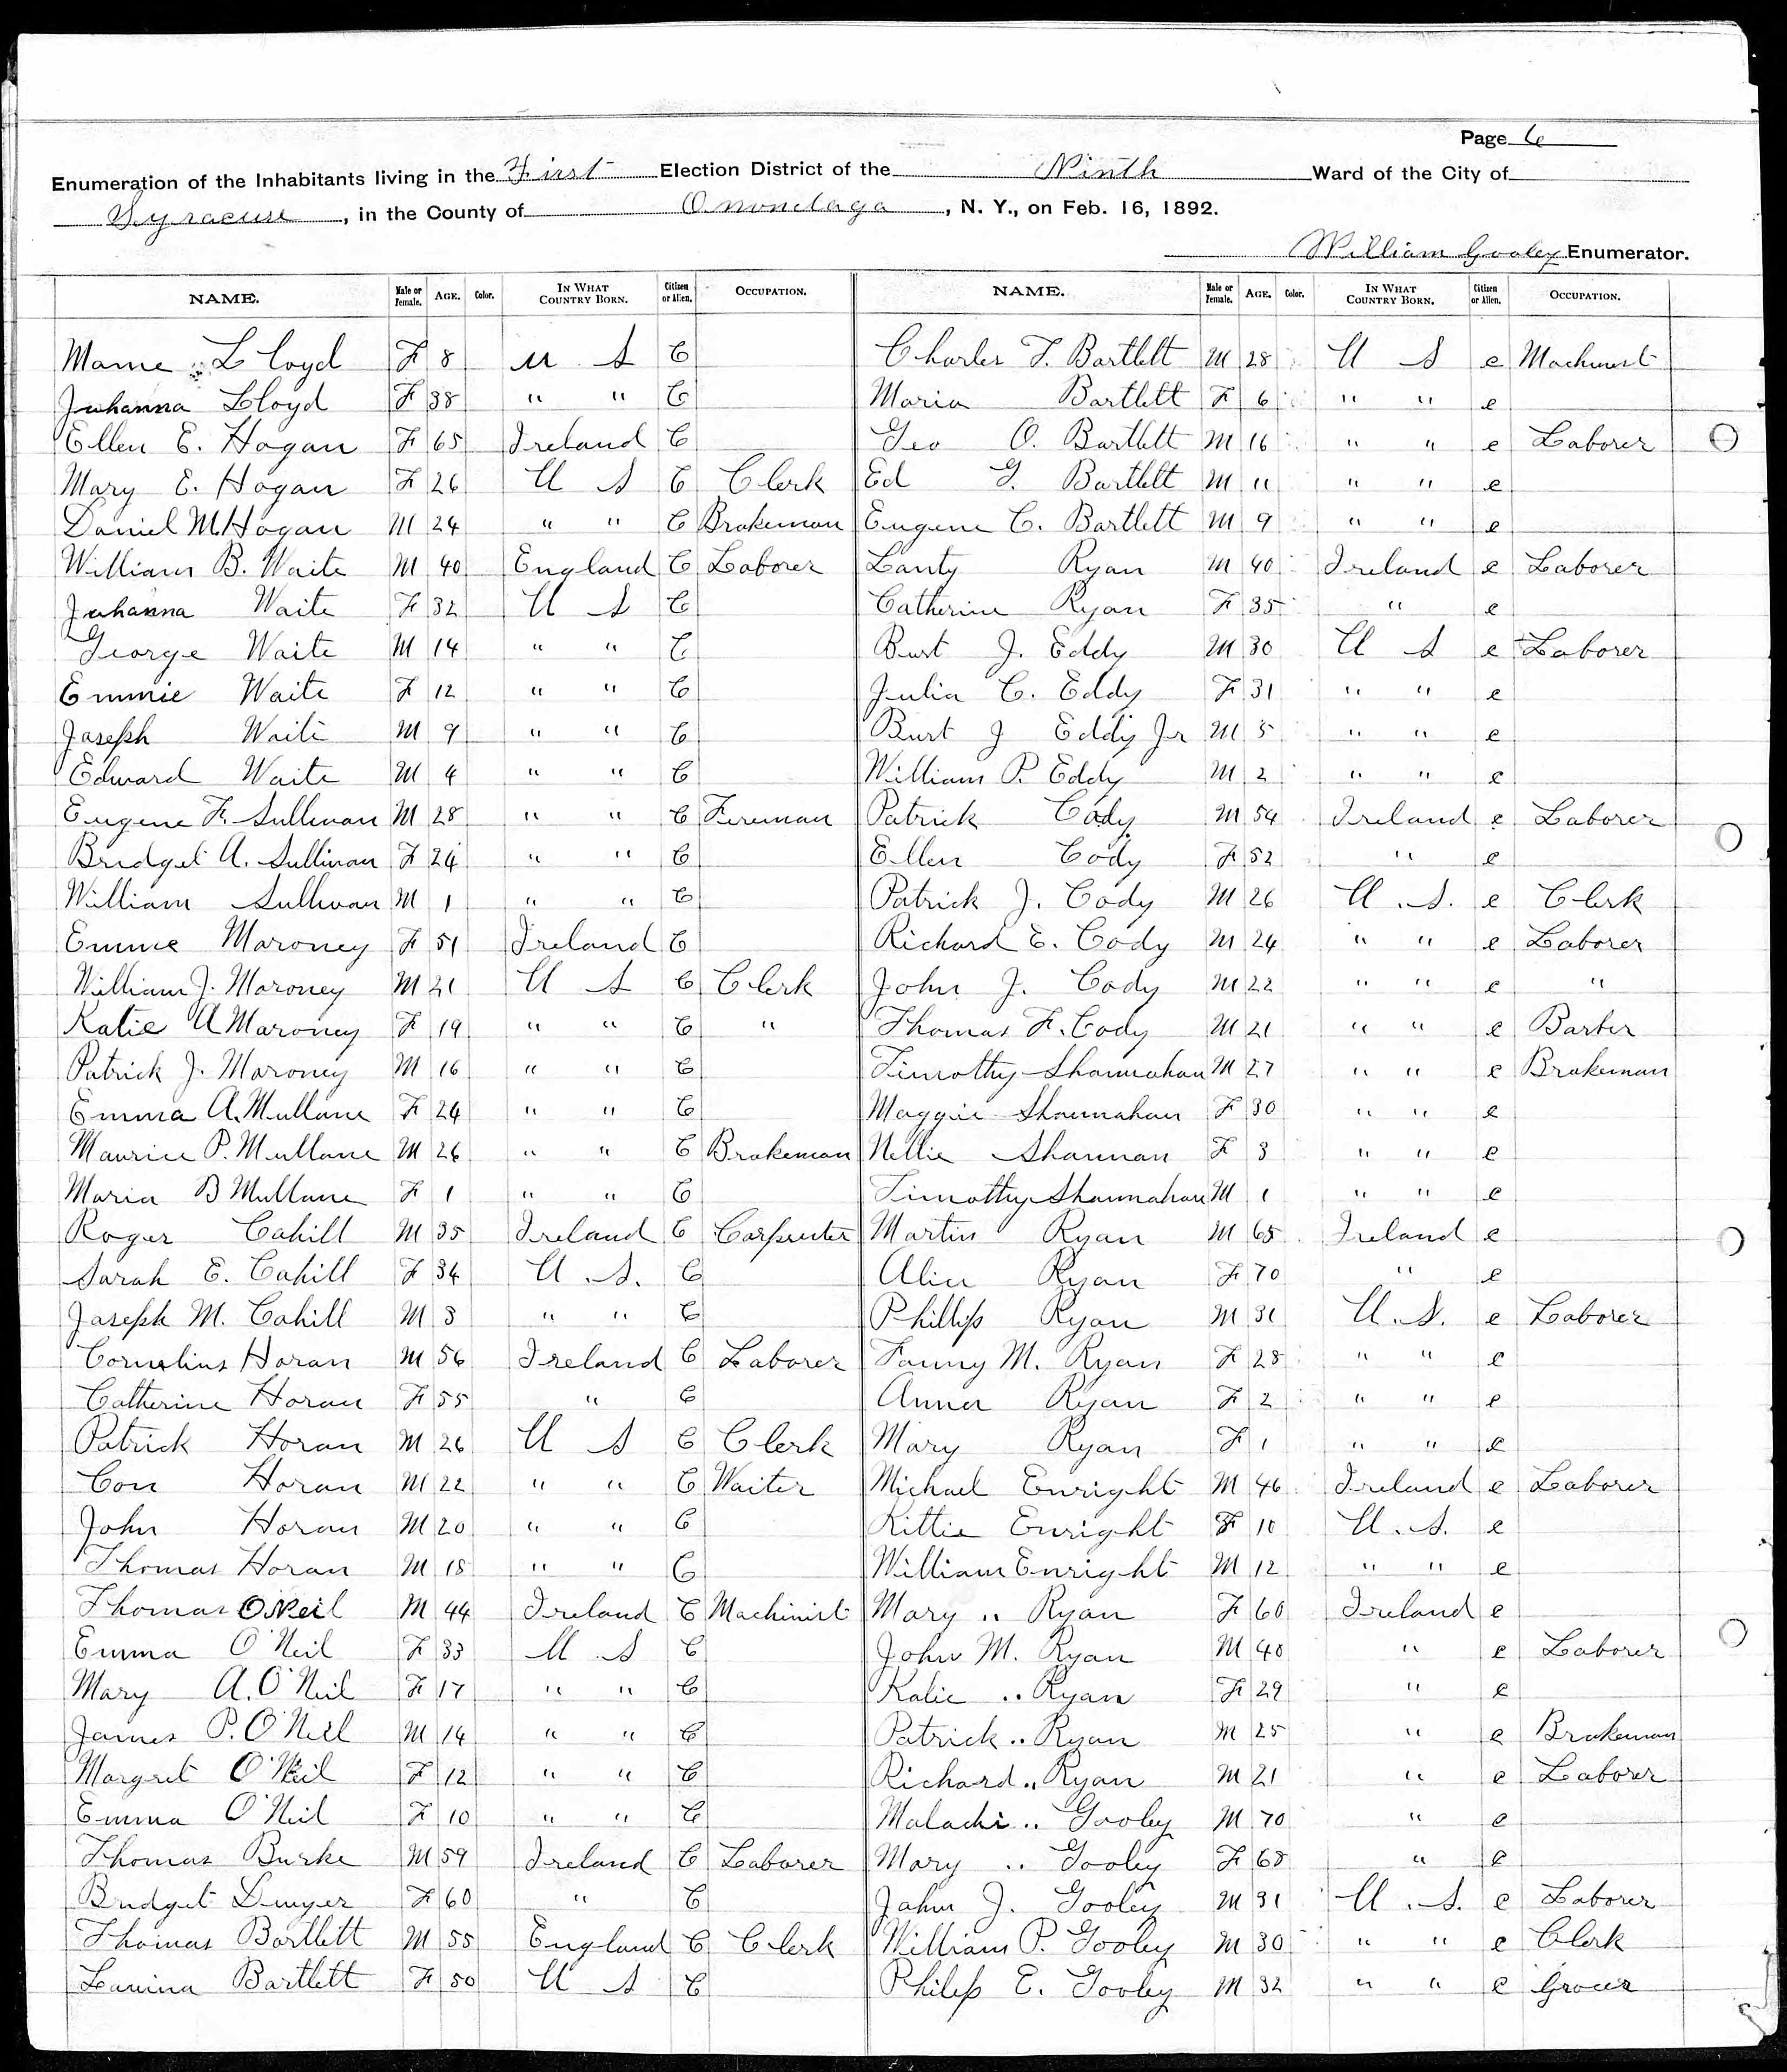 Page 6
Enumeration of the Inhabitants living in the First Election District of the Ninth Ward of the City of
Syracuse, in the County of Onondaga, N. Y., on Feb. 16, 1892.
William Gooley Enumerator.
NAME. Male or Female. AGE. Color. IN WHAT COUNTRY BORN. Citizen or Alien. OCCUPATION.
Mame Lloyd F 8 U S C
Juhanna Lloyd F 38 " " C
Ellen E. Hogan F 65 Ireland C
Mary E. Hogan F 26 U S C Clerk
Daniel M. Hogan M 24 " " C Brakeman
William B. Waite M 40 England C Laborer
Juhanna Waite F 32 U S C
George Waite M 14 " " C
Emmie Waite F 12 " " C
Joseph Waite M 9 " " C
Edward Waite M 4 " " C
Eugene F. Sullivan M 28 " " C Fireman
Bridget A. Sullivan F 24 " " C
William Sullivan M 1 " " C
Emma Maroney F 51 Ireland C
William J. Maroney M 21 U S C Clerk
Katie A Maroney F 19 " " C "
Patrick J. Maroney M 16 " " C
Emma A. Mullane F 24 " " C
Maurice P. Mullane M 26 " " C Brakeman
Maria B Mullane F 1 " " C
Roger Cahill M 35 Ireland C Carpenter
Sarah E. Cahill F 34 U. S. C
Joseph M. Cahill M 3 " " C
Cornelius Horan M 56 Ireland C Laborer
Catherine Horan F 55 " C
Patrick Horan M 26 U S C Clerk
Con Horan M 22 " " C Waiter
John Horan M 20 " " C
Thomas Horan M 18 " " C
Thomas O'Neil M 44 Ireland C Machinist
Emma O'Neil F 33 U S C
Mary A. O'Neil F 17 " " C
James P. O'Neil M 14 " " C
Margret O'Neil F 12 " " C
Emma O'Neil F 10 " " C
Thomas Burke M 59 Ireland C Laborer
Bridget Dwyer F 60 " C
Thomas Bartlett M 55 England C Clerk
Lavina Bartlett F 50 U S C
NAME. Male or Female. AGE. Color. IN WHAT COUNTRY BORN. Citizen or Alien. OCCUPATION.
Charles T. Bartlett M 28 U S c Machinist
Maria Bartlett F 6 " " c
Geo O. Bartlett M 16 " " c Laborer
Ed G. Bartlett M 11 " " c
Eugene C. Bartlett M 9 " " c
Lanty Ryan M 40 Ireland c Laborer
Catherine Ryan F 35 " c
Burt J. Eddy M 30 U S c Laborer
Julia C. Eddy F 31 " " c
Burt J Eddy Jr M 5 " " c
William P. Eddy M 2 " " c
Patrick Cody M 54 Ireland c Laborer
Ellen Cody F 52 " c
Patrick J. Cody M 26 U. S. c Clerk
Richard E. Cody M 24 " " c Laborer
John J. Cody M 22 " " c "
Thomas F. Cody M 21 " " c Barber
Timothy Shannahan M 27 " " c Brakeman
Maggie Shannahan F 30 " " c
Nellie Shannan F 3 " " c
Timothy Shannahan M 1 " " c
Martin Ryan M 65 Ireland c
Alice Ryan F 70 " c
Phillip Ryan M 31 U. S. c Laborer
Fanny M. Ryan F 28 " " c
Anna Ryan F 2 " " c
Mary Ryan F 1 " " c
Michael Enright M 46 Ireland c Laborer
Kittie Enright F 10 U. S. c
William Enright M 12 " " c
Mary " Ryan F 60 Ireland c
John M. Ryan M 40 " c Laborer
Katie " Ryan F 29 " c
Patrick " Ryan M 25 " c Brakeman
Richard " Ryan M 21 " c Laborer
Malachi " Gooley M 70 " c
Mary " Gooley F 68 " c
John J. Gooley M 31 U. S. c Laborer
William P. Gooley M 30 " " c Clerk
Philip E. Gooley M 32 " " c Grocer